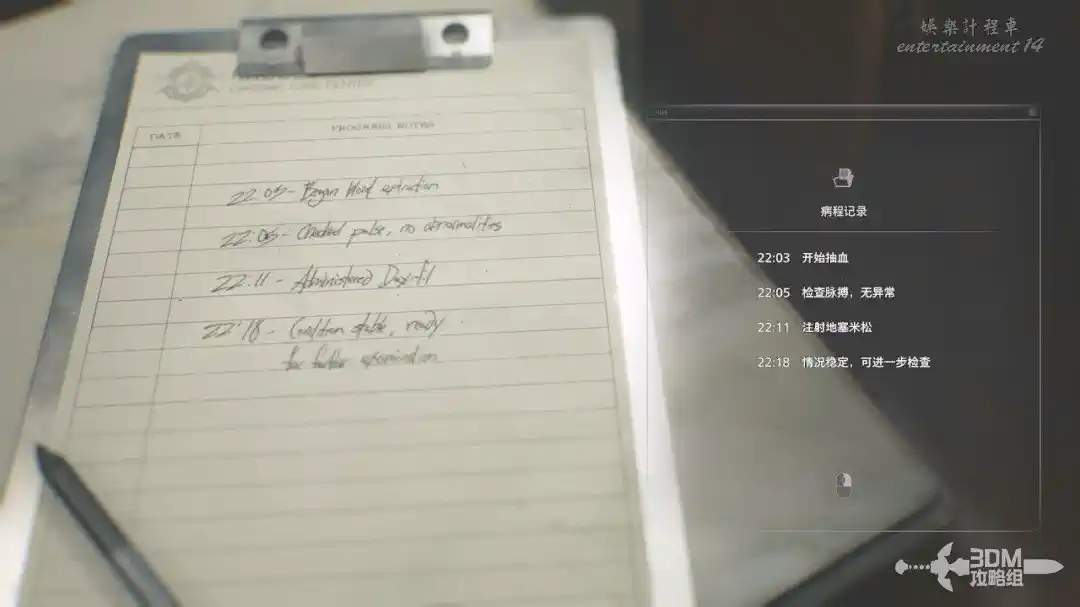 娛樂計程車
entertainment 14
CHRONIC CARE CENTER
DATE
PROGRESS NOTES
22:03 - Began blood extraction
22:05 - Checked pulse, no abnormalities
22:11 - Administered
22:18 - Condition stable, ready
for further examination
病程记录
22:03 开始抽血
22:05 检查脉搏，无异常
22:11 注射地塞米松
22:18 情况稳定，可进一步检查
3DM
攻略组